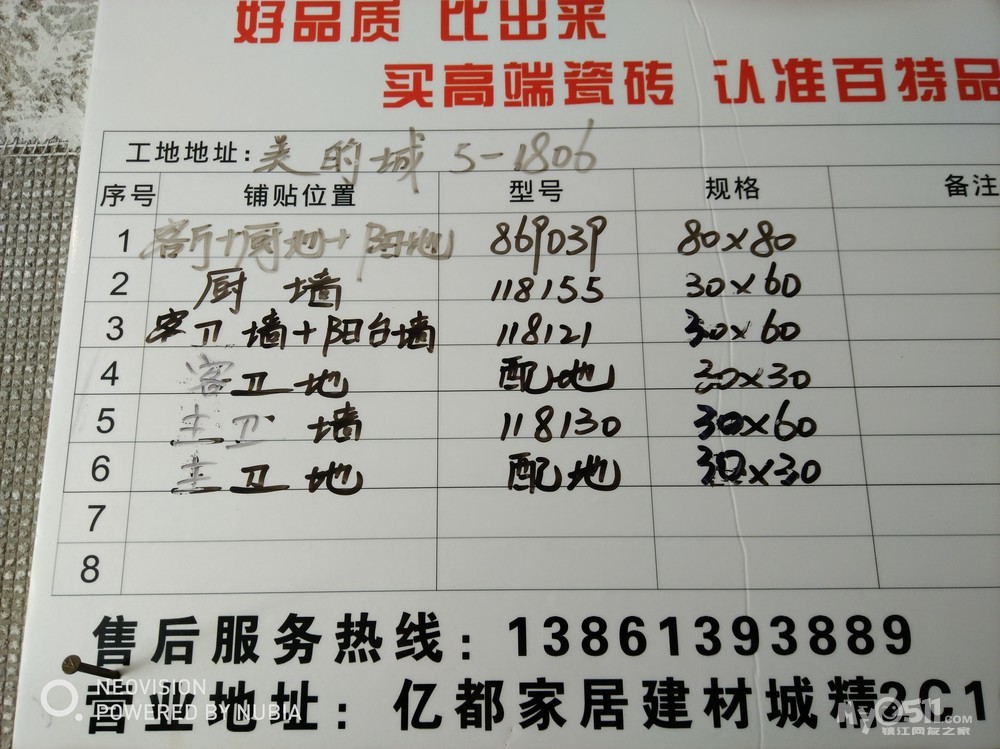 好品质 比出来
买高端瓷砖 认准百特品
工地地址: 美的城 5-1806
序号 铺贴位置 型号 规格 备注
1 客厅+厨地+阳地 869039 80×80
2 厨 墙 118155 30×60
3 客卫墙+阳台墙 118121 30×60
4 客卫地 配地 30×30
5 主卫 墙 118130 30×60
6 主卫地 配地 30×30
7
8
售后服务热线: 13861393889
营业地址: 亿都家居建材城精2C1
NEOVISION
POWERED BY NUBIA
MY0511.COM
镇江网友之家